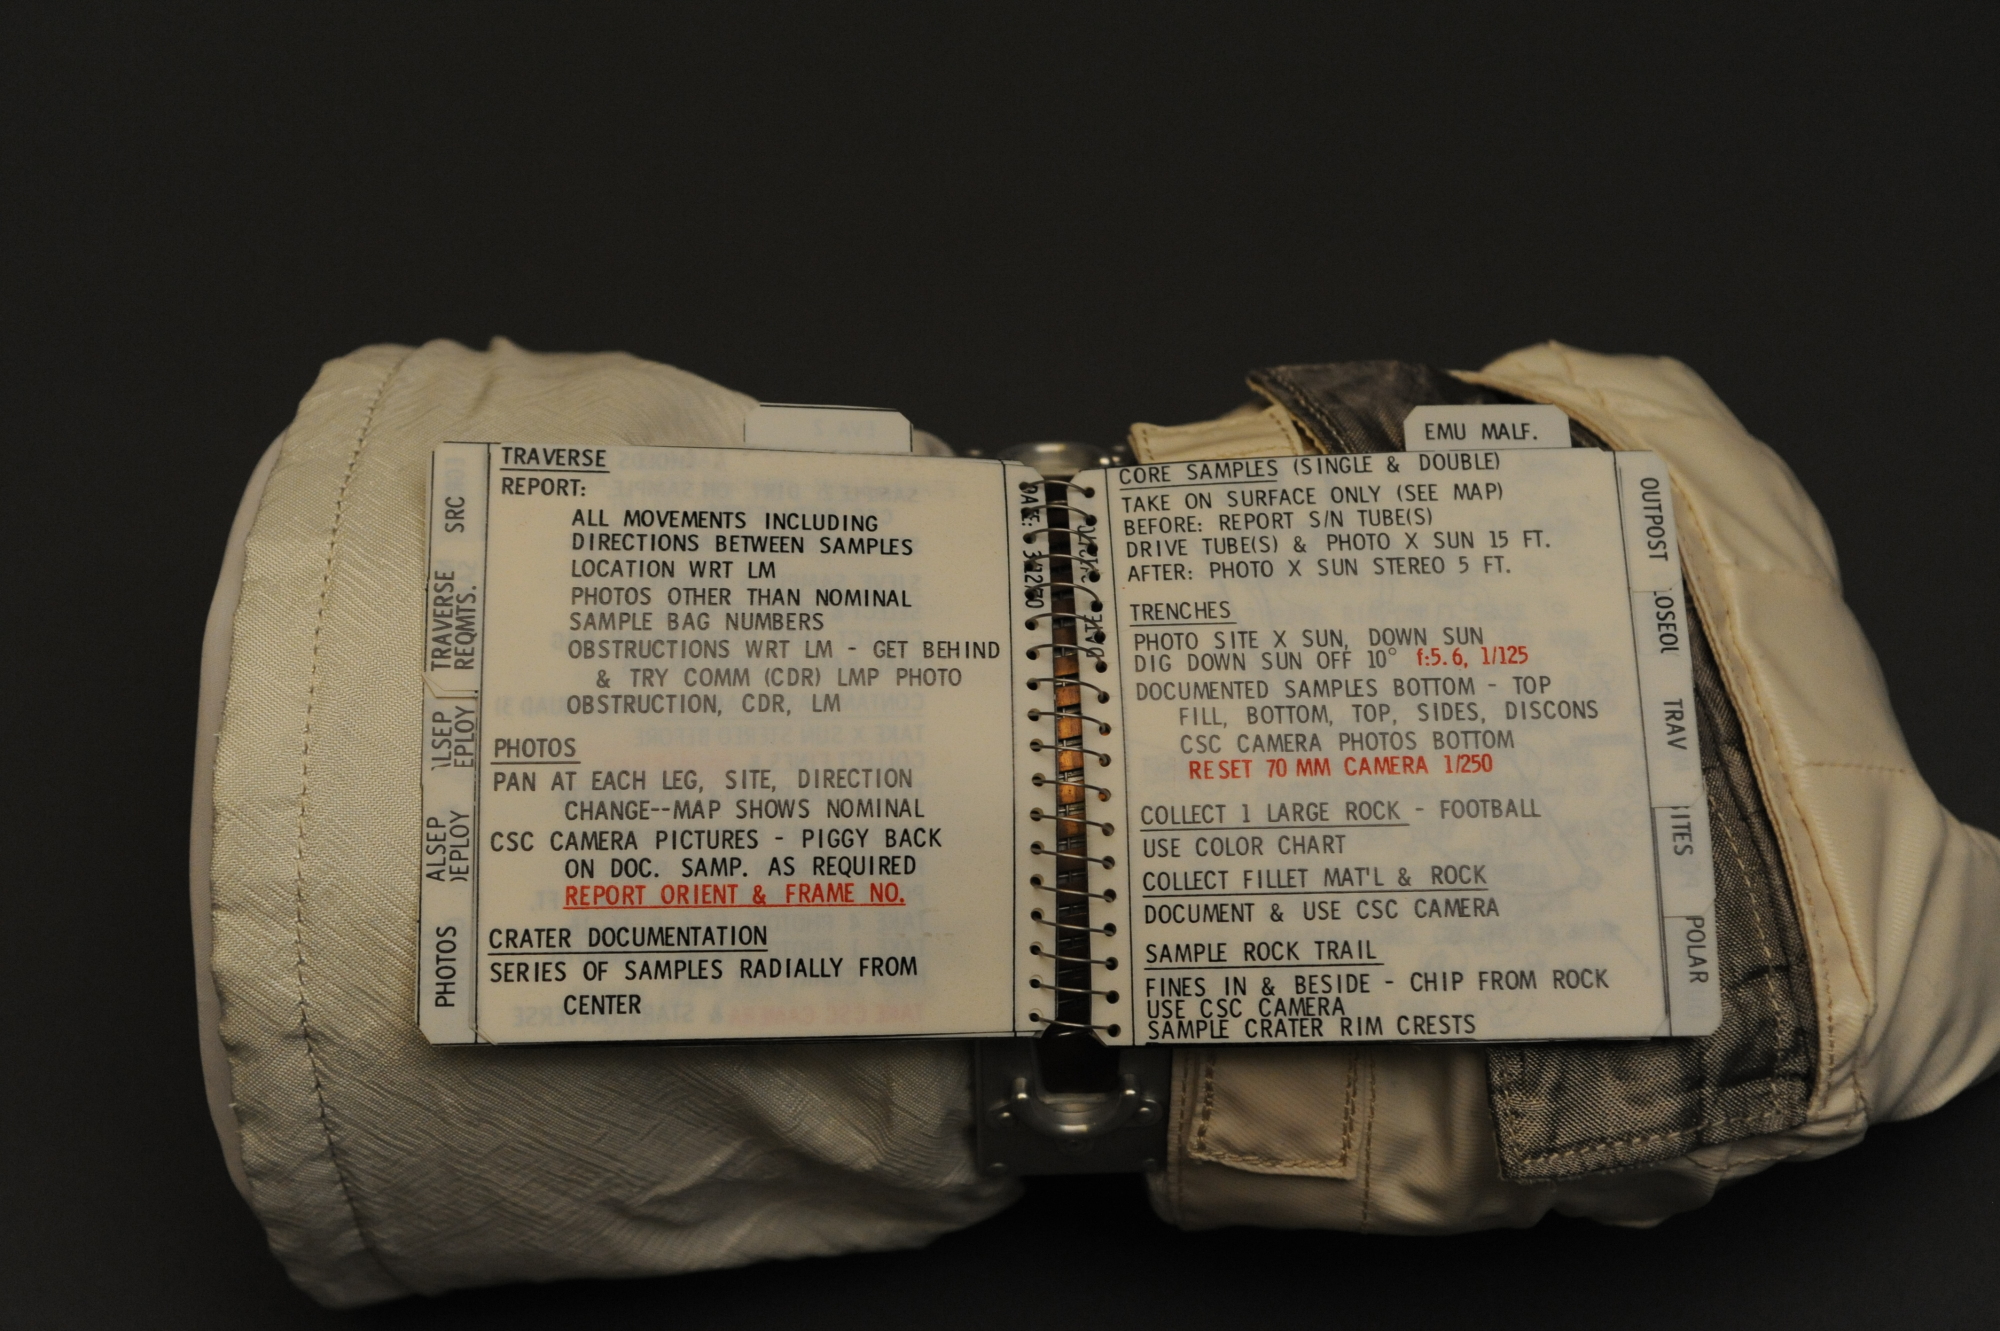 EMU MALF.
SRC
TRAVERSE
REQMTS.
ALSEP
PHOTOS
TRAVERSE
REPORT:
ALL MOVEMENTS INCLUDING
DIRECTIONS BETWEEN SAMPLES
LOCATION WRT LM
PHOTOS OTHER THAN NOMINAL
SAMPLE BAG NUMBERS
OBSTRUCTIONS WRT LM - GET BEHIND
& TRY COMM (CDR) LMP PHOTO
OBSTRUCTION, CDR, LM
PHOTOS
PAN AT EACH LEG, SITE, DIRECTION
CHANGE--MAP SHOWS NOMINAL
CSC CAMERA PICTURES - PIGGY BACK
ON DOC. SAMP. AS REQUIRED
REPORT ORIENT & FRAME NO.
CRATER DOCUMENTATION
SERIES OF SAMPLES RADIALLY FROM
CENTER
CORE SAMPLES (SINGLE & DOUBLE)
TAKE ON SURFACE ONLY (SEE MAP)
BEFORE: REPORT S/N TUBE(S)
DRIVE TUBE(S) & PHOTO X SUN 15 FT.
AFTER: PHOTO X SUN STEREO 5 FT.
TRENCHES
PHOTO SITE X SUN, DOWN SUN
DIG DOWN SUN OFF 10° f:5.6, 1/125
DOCUMENTED SAMPLES BOTTOM - TOP
FILL, BOTTOM, TOP, SIDES, DISCONS
CSC CAMERA PHOTOS BOTTOM
RESET 70 MM CAMERA 1/250
COLLECT 1 LARGE ROCK - FOOTBALL
USE COLOR CHART
COLLECT FILLET MAT'L & ROCK
DOCUMENT & USE CSC CAMERA
SAMPLE ROCK TRAIL
FINES IN & BESIDE - CHIP FROM ROCK
USE CSC CAMERA
SAMPLE CRATER RIM CRESTS
OUTPOST
TRAV
POLAR